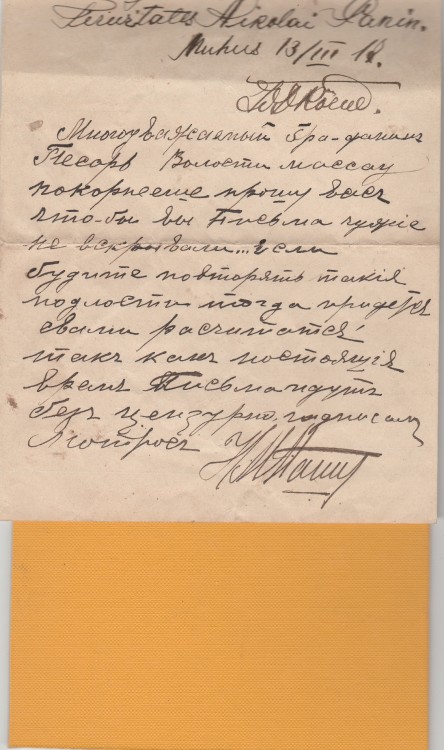 Nikolai Panin.
Muhus 13/III 18.
Многоуважаемый гра-данинъ
Песорь Волости Массау
покорнеше прошу васъ
что-бы вы Письма чужие
не вскрывали... Если
будите повторять такiя
подлости тогда придетъся
свами расчитатся!
такъ какъностоящiя
время Письма идутъ
безъ цензуры. подписал
Мотросъ